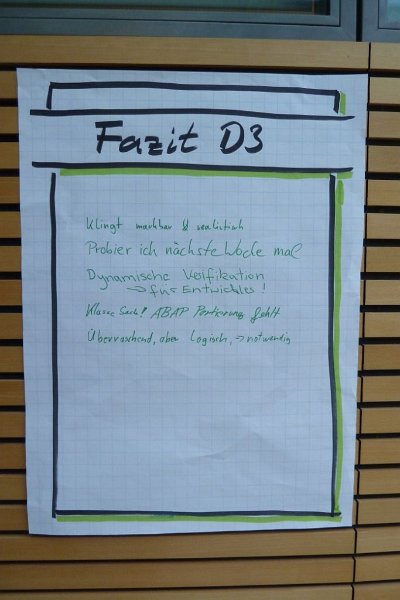 Fazit D3
Klingt machbar & realistisch
Probier ich nächste Woche mal
Dynamische Verifikation
→ für Entwickler!
Klasse Sach! ABAP Portierung fehlt
Überraschend, aber Logisch, → notwendig